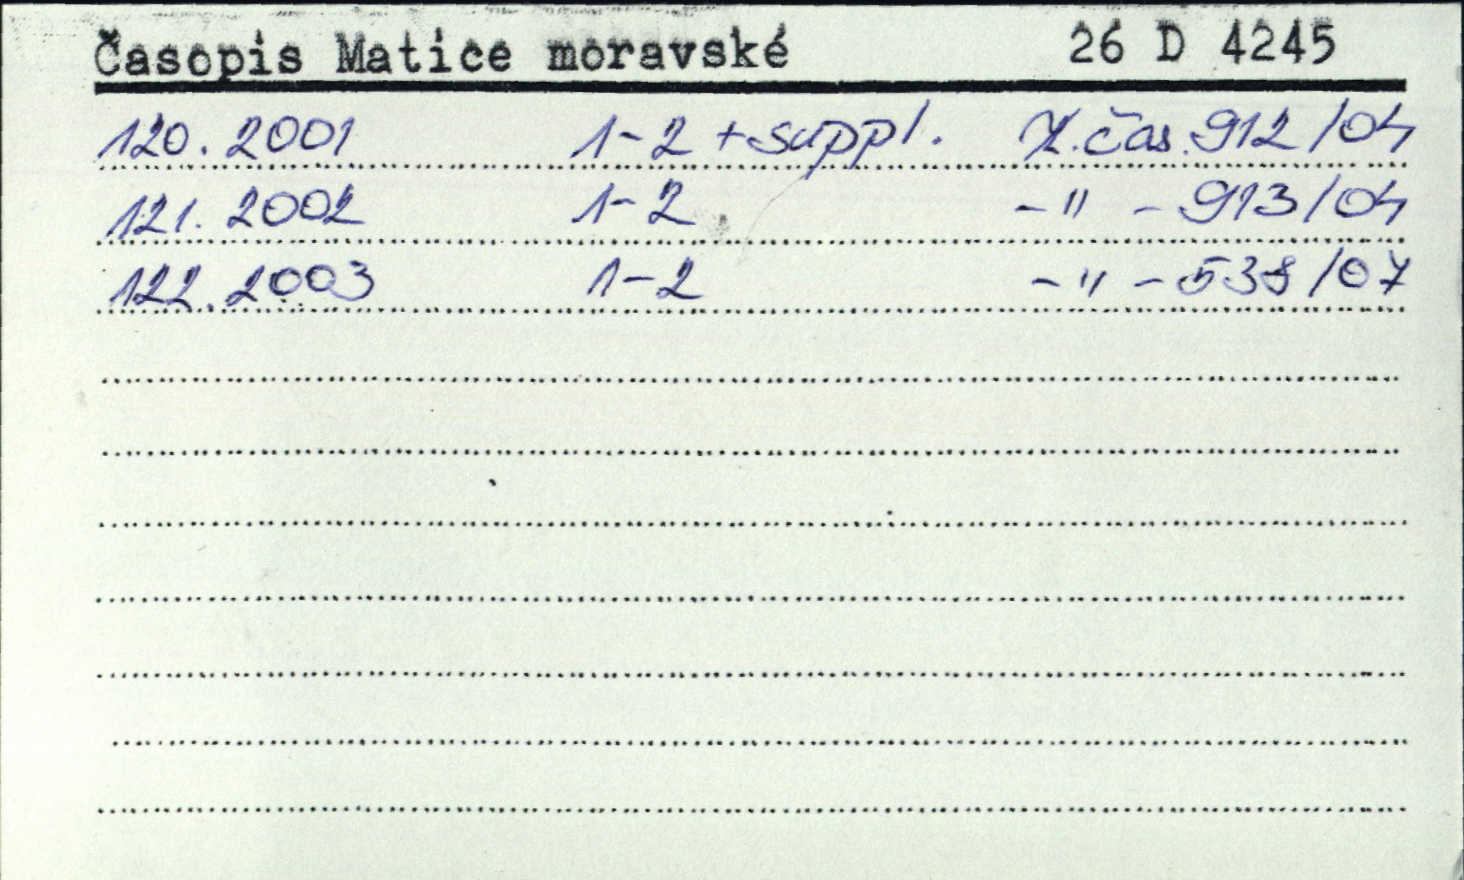 Časopis Matice moravské 26 D 4245
120. 2001 1-2 + suppl. Z. čas. 912/04
121. 2002 1-2 -"- 913/04
122. 2003 1-2 -"- 538/07